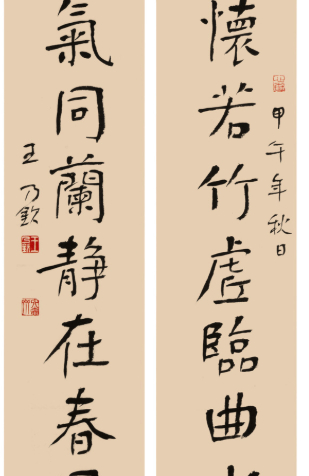 懷若竹虛臨曲
甲午年秋日
氣同蘭静在春
王乃欽